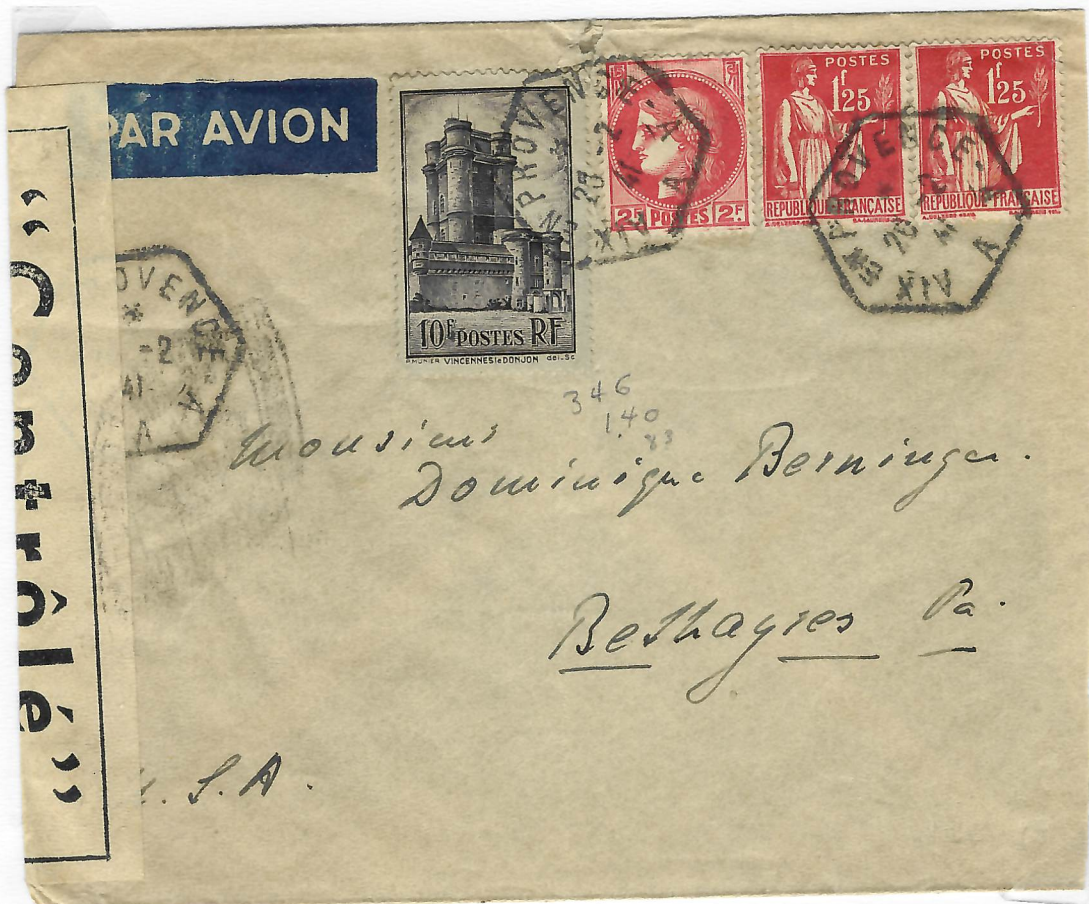 PAR AVION
“Contrôlé”
10F POSTES RF
P.MUNIER VINCENNES LE DONJON del.Sc
2F POSTES 2F
POSTES
1f25
REPUBLIQUE FRANÇAISE
POSTES
1f25
REPUBLIQUE FRANÇAISE
AIX EN PROVENCE. A
20 -2
41
A
AIX EN PROVENCE. A
20 -2
41
A
PROVENCE
-2
41
A
346
1.40
83
Monsieur
Dominique Berninger.
Bethayres Pa.
U.S.A.